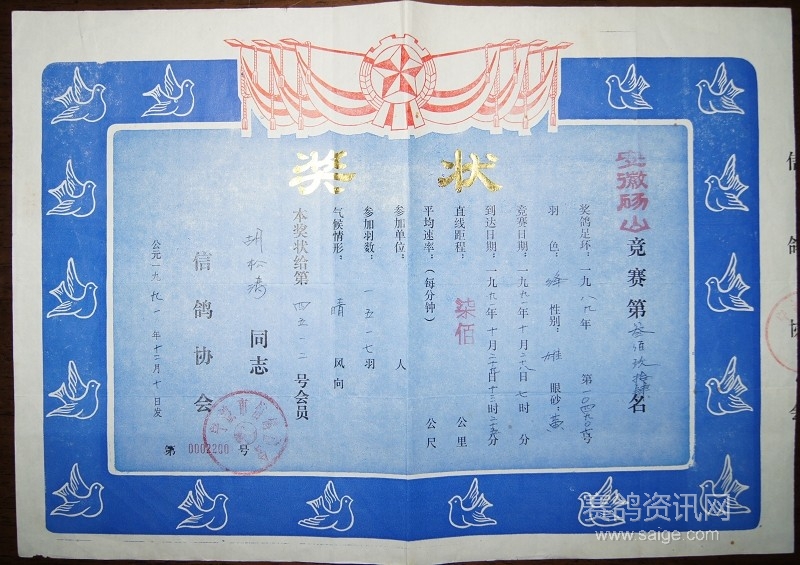 奖状
安徽砀山竞赛第叁佰玖拾肆名
奖鸽足环：一九八九年 第一〇四九〇六号
羽色：绛 性别：雄 眼砂：黄
竞赛日期：一九九一年十月二十八日七时 分
到达日期：一九九一年十月
直线距程：柒佰 公里
平均速率：（每分钟） 公尺
参加单位： 人
参加羽数：一五一七羽
气候情形：晴 风向
本奖状给第四五一二号会员
胡松涛 同志
信鸽协会
公元一九九一年十二月十日发
第 0002200 号
信鸽协会
赛鸽资讯网
www.saige.com